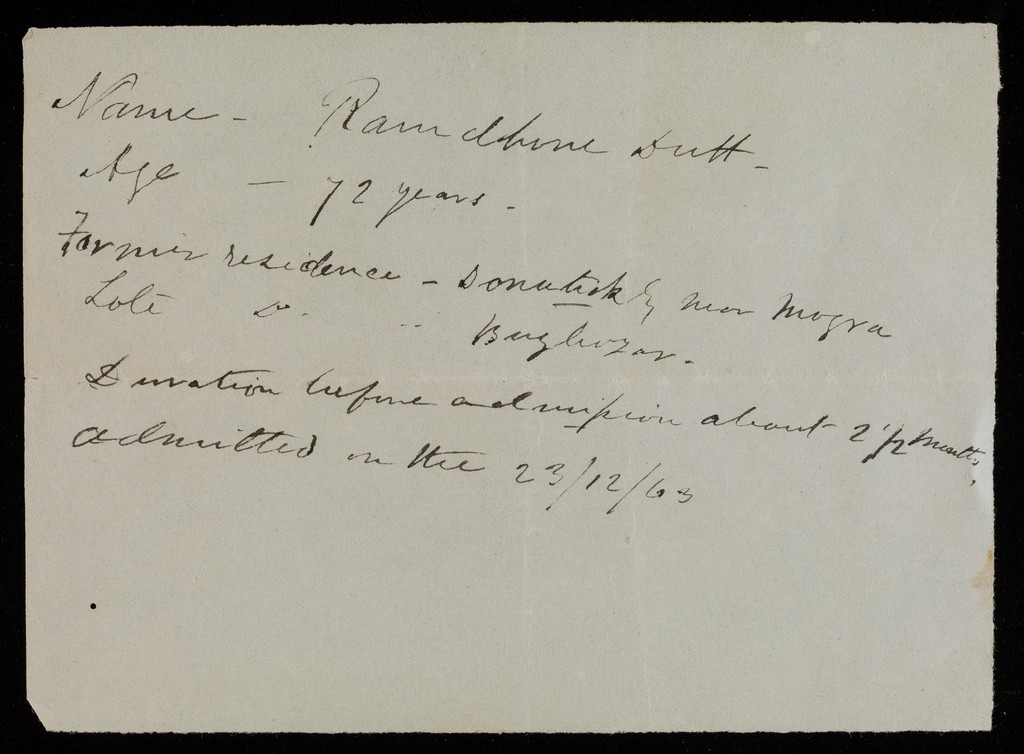 Name - Ramdhone Dutt -
Age - 72 years -
Former residence - near Mogra
Late Do. Bugbazar -
Duration before admission about 2 1/2 months,
admitted on the 23/12/63